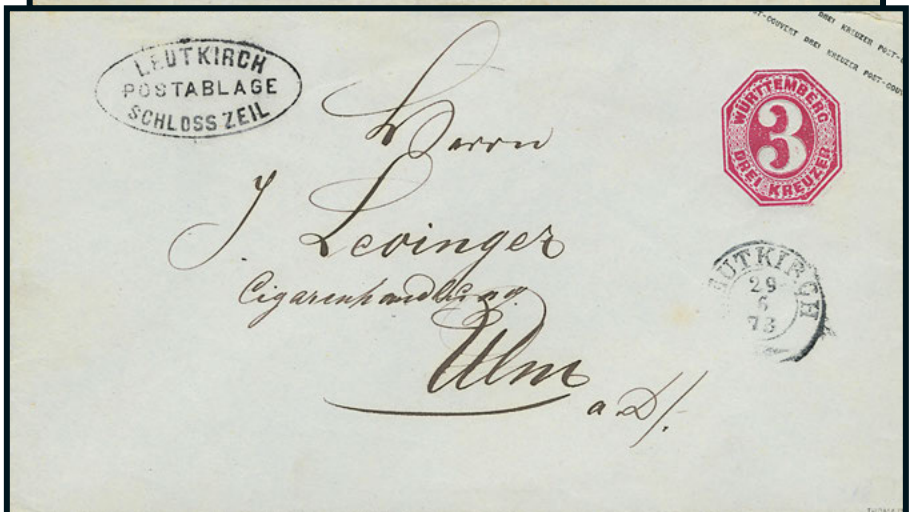 LEUTKIRCH
POSTABLAGE
SCHLOSS ZEIL
DREI KREUZER POST-
ST-COUVERT DREI KREUZER POST-COUV
WÜRTTEMBERG
3
DREI KREUZER
Herrn
J. Levinger
Cigarenhandlung
Ulm
a. D/.
LEUTKIRCH
29
6
73